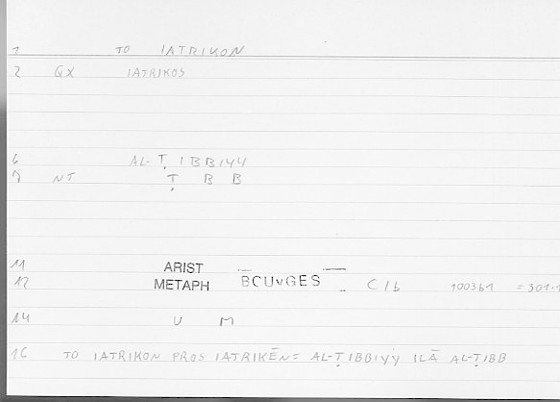 1 TO IATRIKON
2 GX IATRIKOS
6 AL-ṬIBBIYY
7 NT Ṭ B B
11 ARIST
12 METAPH BCUvGES C/b 1003b1 =301.1
14 U M
16 TO IATRIKON PROS IATRIKĒN= AL-ṬIBBIYY ILĀ AL-ṬIBB